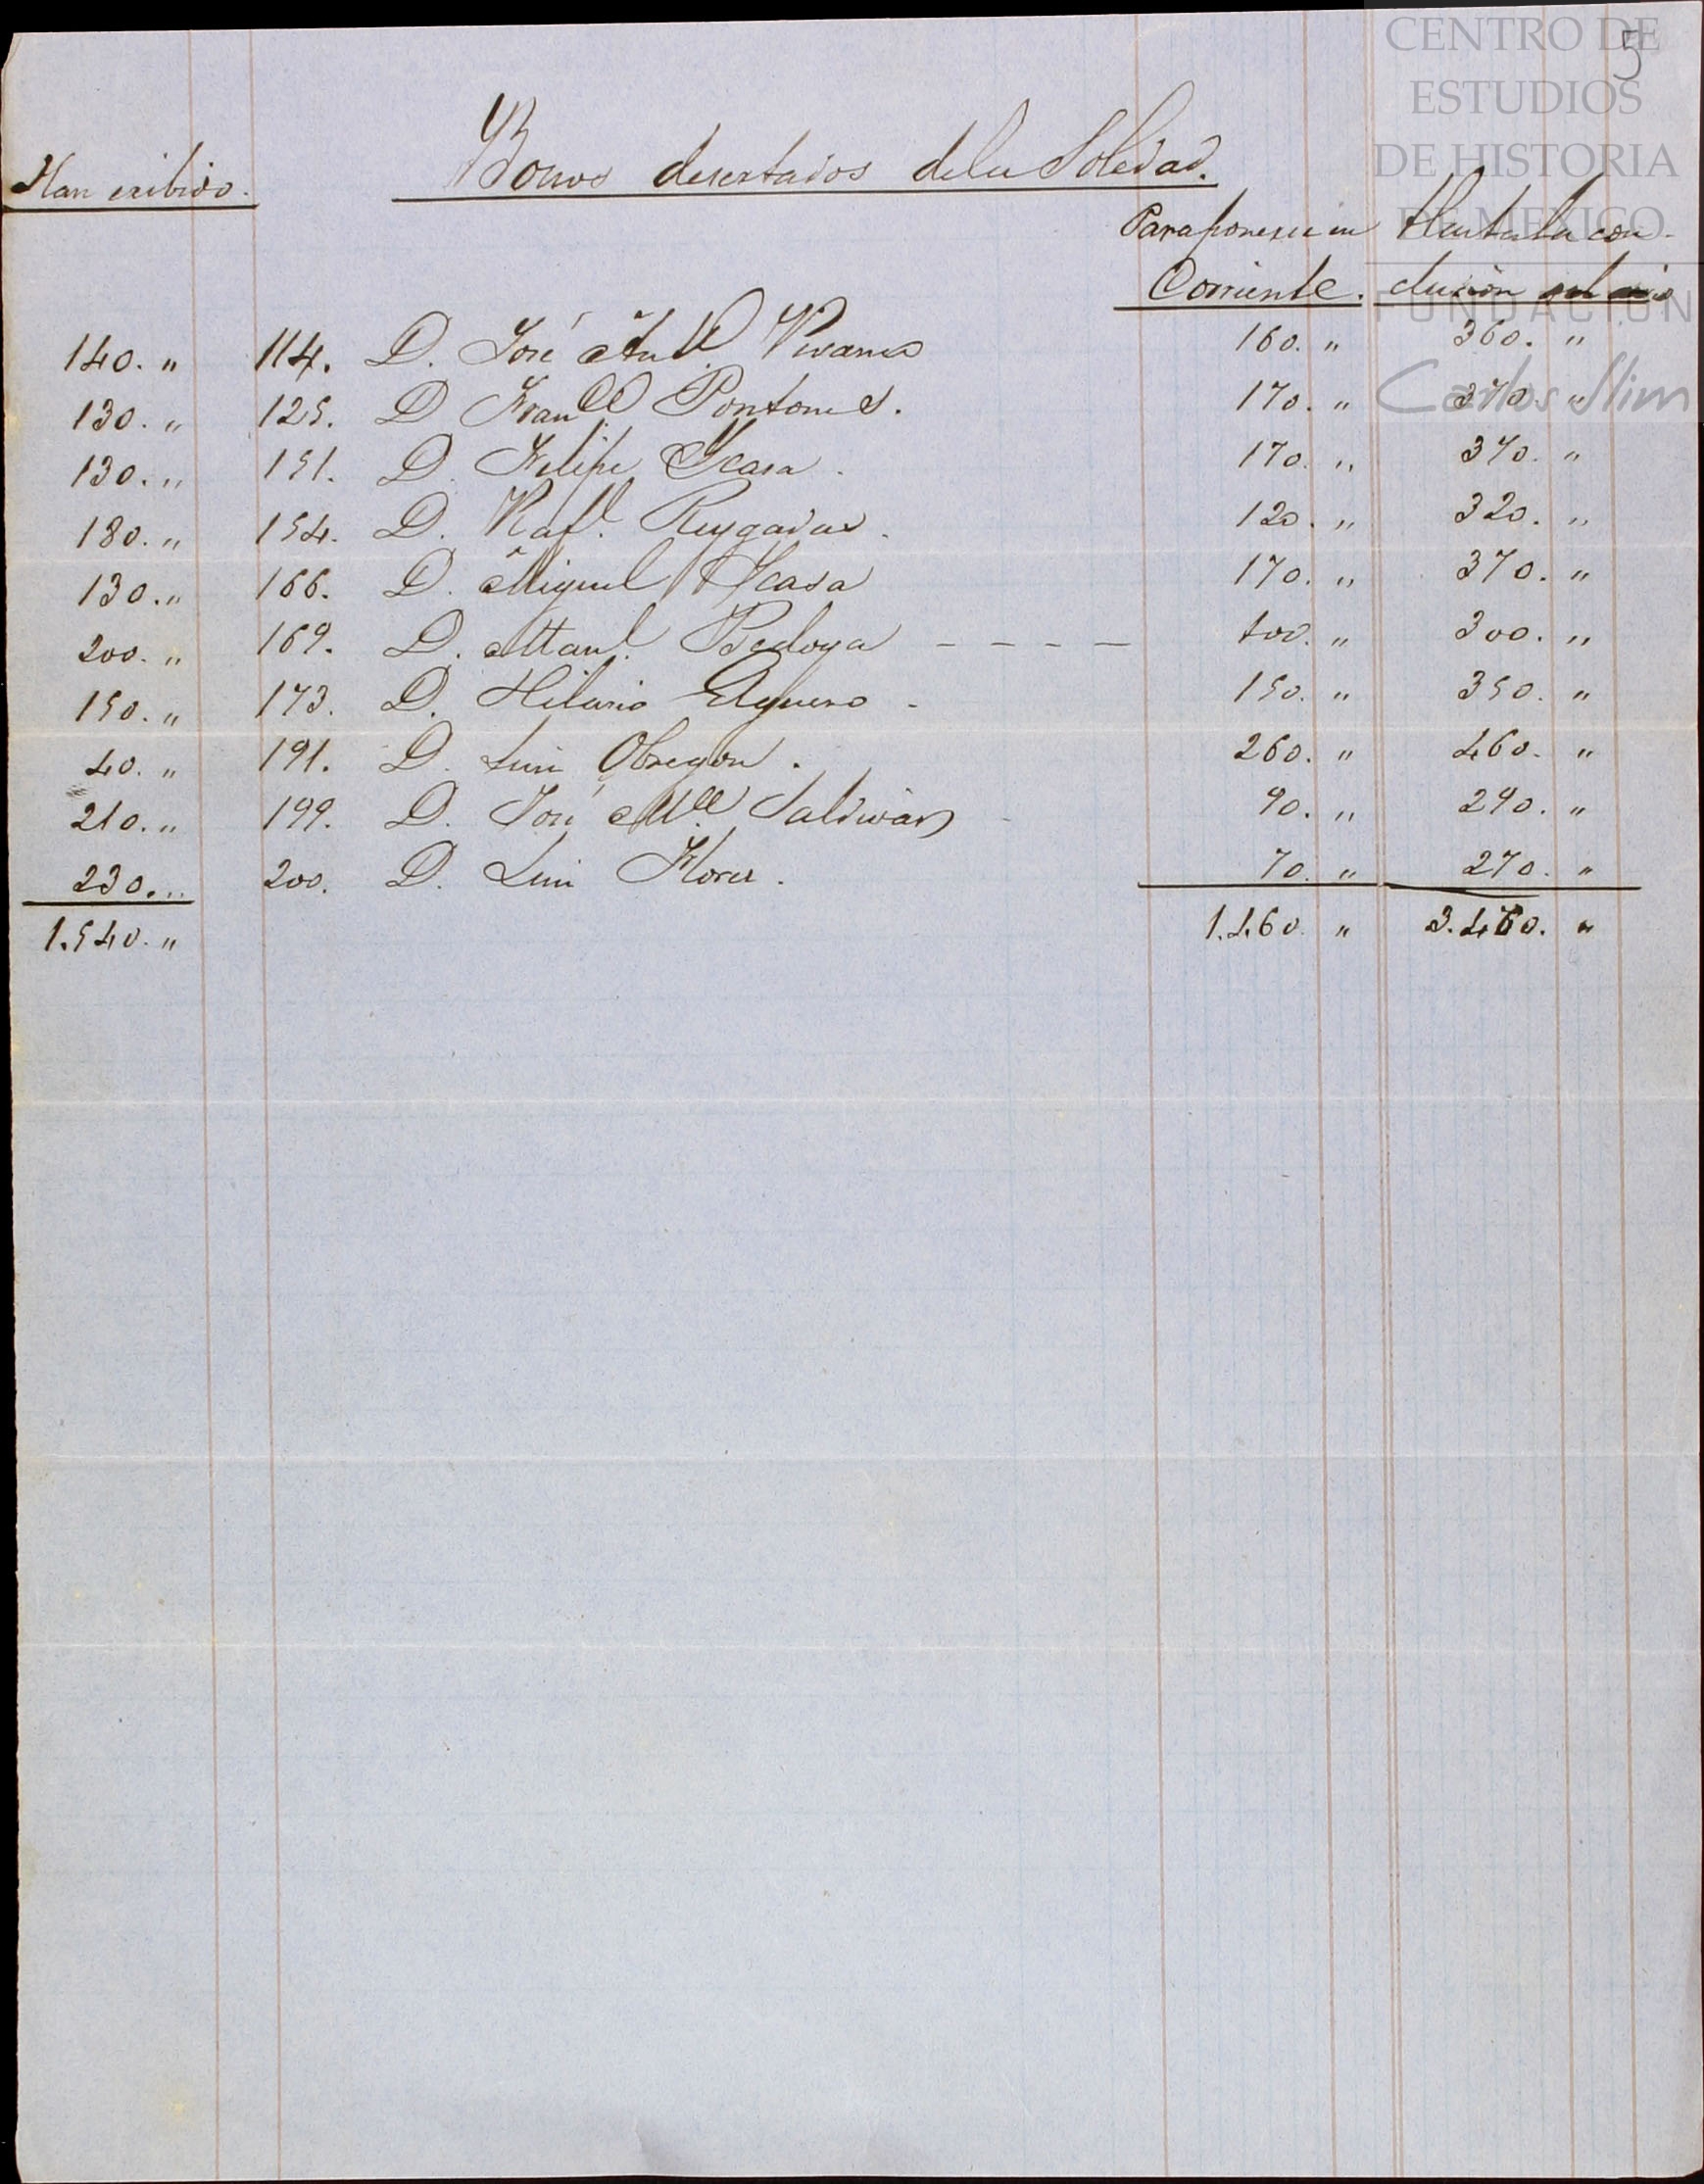 5
CENTRO DE
ESTUDIOS
DE HISTORIA
DE MEXICO
FUNDACION
Carlos Slim
Han exibido. Bonos desertados de la Soledad.
Para ponerse en Hasta la con-
Corriente. clusión
140. " 114. D. José Vivanco 160. " 360. "
130. " 125. D Franco Pontones. 170. " 370. "
130. " 151. D. Felipe Ycasa. 170. " 370. "
180. " 154. D. Rafl. Reygadas. 120. " 320. "
130. " 166. D. Miguel Ycasa 170. " 370. "
200. " 169. D. Manl. Bedoya - - - - 100. " 300. "
150. " 173. D. Hilario Aguero - 150. " 350. "
40. " 191. D. Luis Obregon. 260. " 460. "
210. " 199. D. José Ma Saldivar 90. " 290. "
230. " 200. D. Luis Flores. 70. " 270. "
1.540. " 1.460. " 3.460. "